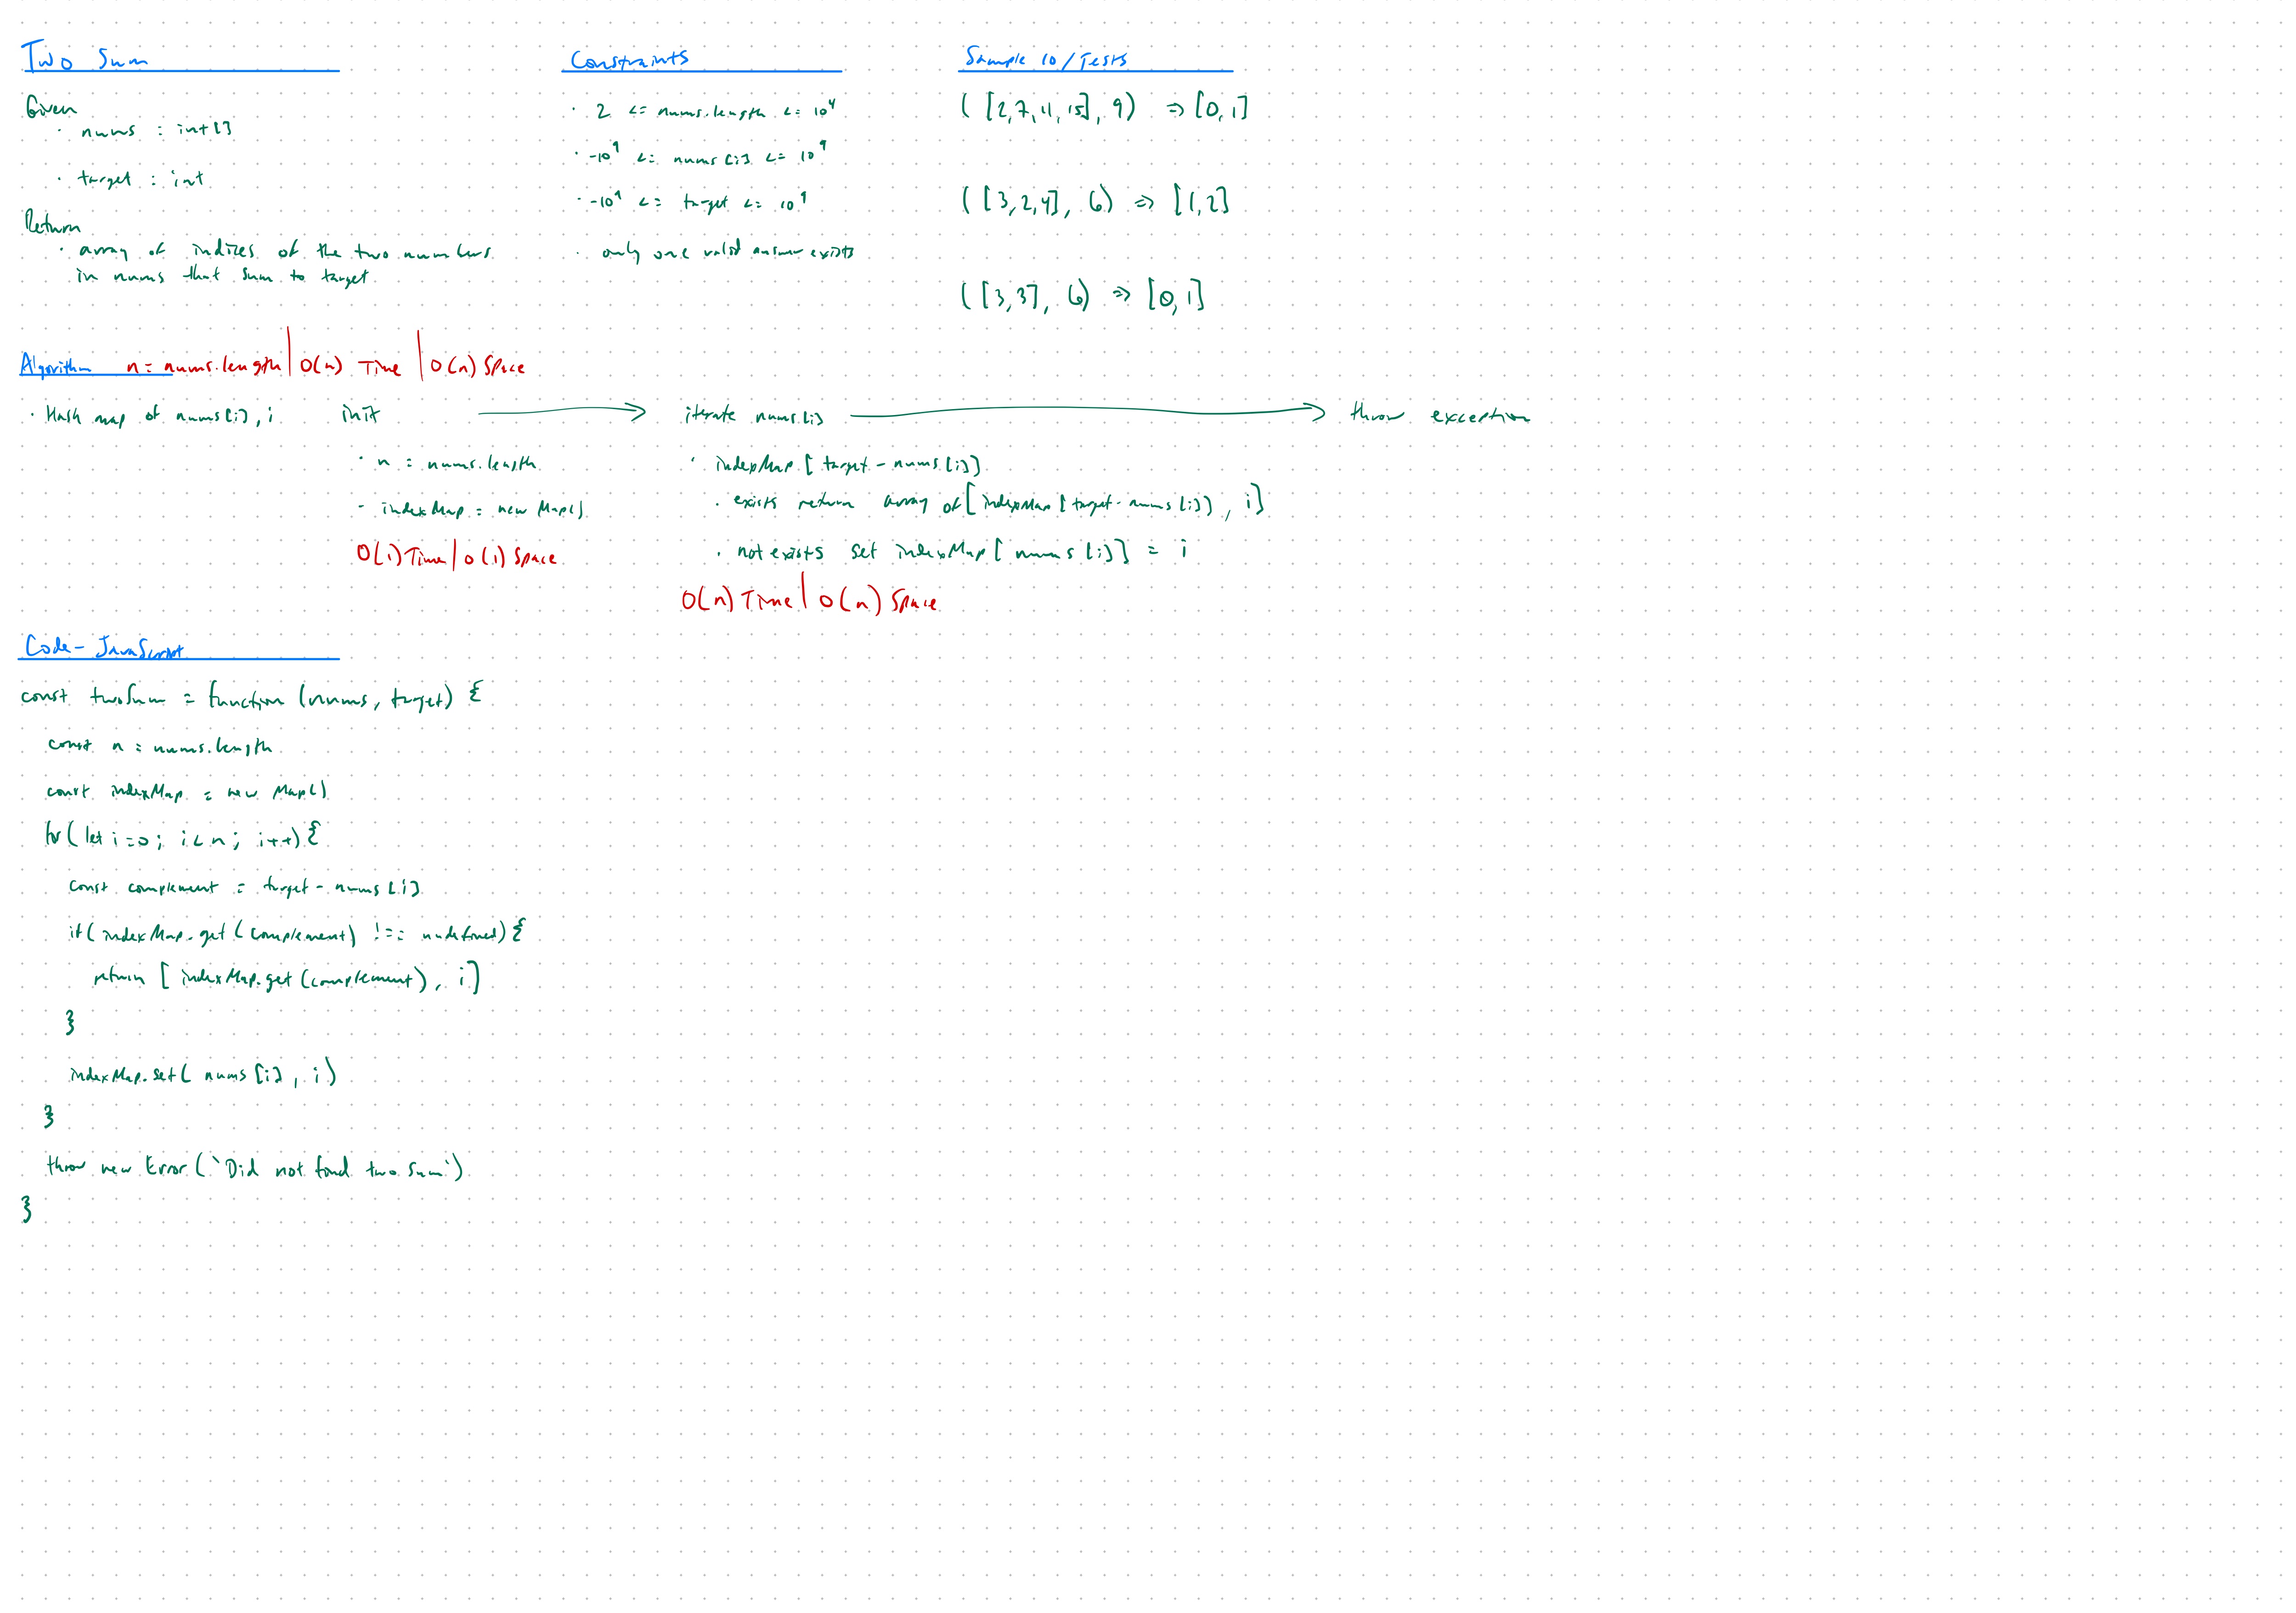 Two Sum
Given
· nums : int[]
· target : int
Return
· array of indices of the two numbers
in nums that sum to target
Constraints
· 2 <= nums.length <= 10^4
· -10^9 <= nums[i] <= 10^9
· -10^9 <= target <= 10^9
· only one valid answer exists
Sample IO/Tests
([2,7,11,15], 9) => [0,1]
([3,2,4], 6) => [1,2]
([3,3], 6) => [0,1]
Algorithm n = nums.length | O(n) Time | O(n) Space
· Hash map of nums[i], i
init
· n = nums.length
- indexMap = new Map()
O(1) Time | O(1) Space
iterate nums[i]
· indexMap[target - nums[i]]
· exists return array of [indexMap[target - nums[i]], i]
· not exists set indexMap[nums[i]] = i
O(n) Time | O(n) Space
throw exception
Code - JavaScript
const twoSum = function (nums, target) {
const n = nums.length
const indexMap = new Map()
for (let i=0; i<n; i++) {
const complement = target - nums[i]
if (indexMap.get(complement) !== undefined) {
return [indexMap.get(complement), i]
}
indexMap.set(nums[i], i)
}
throw new Error(`Did not find two sum`)
}